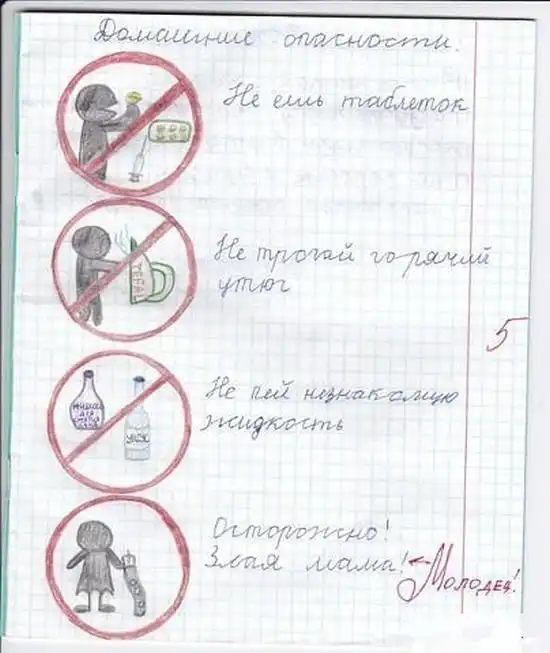 Домашние опасности.
Не ешь таблеток
Не трогай горячий
утюг
TEFAL
5
Не пей незнакомую
жидкость
УКСУС
Осторожно!
Злая мама! ← Молодец!